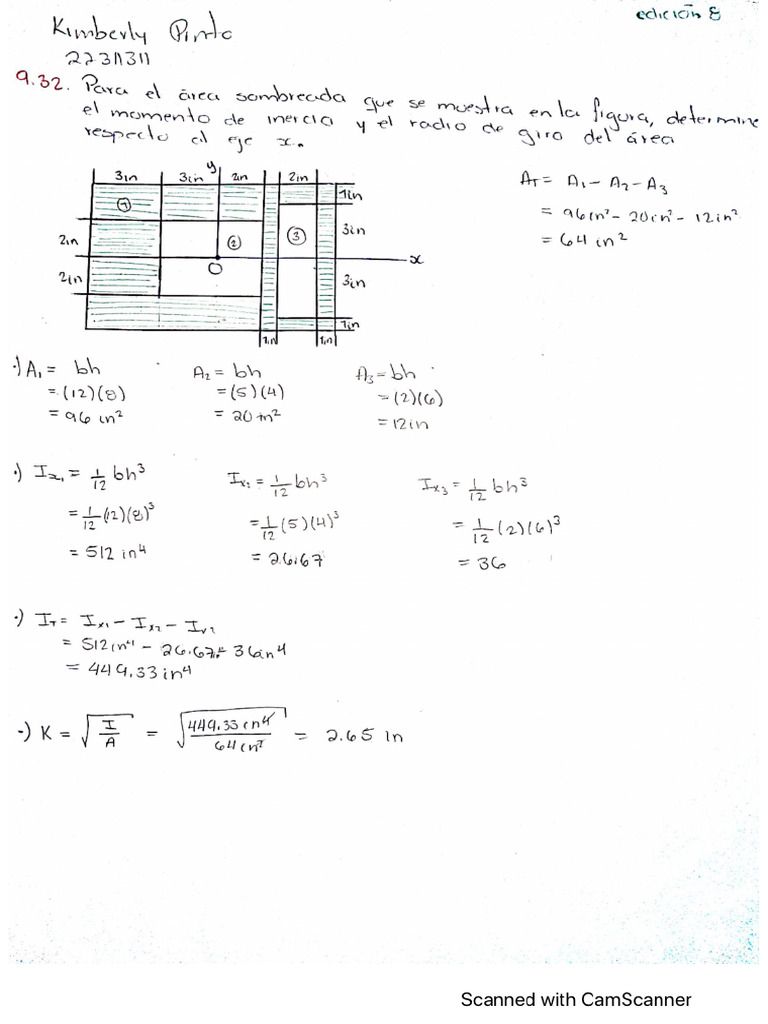 edición 8
Kimberly Pinto
9.32. Para el área sombreada que se muestra en la figura, determine
el momento de inercia y el radio de giro del área
respecto al eje x.
3in 3in y 2in 2in
1in
① 3in
2in ② ③
O x
2in 3in
1in
1in 1in
A_T = A₁ - A₂ - A₃
= 96in² - 20in² - 12in²
= 64 in²
·) A₁ = bh A₂ = bh A₃ = bh
= (12)(8) = (5)(4) = (2)(6)
= 96 in² = 20in² = 12in
·) Iₓ₁ = 1/12 bh³ Iₓ₂ = 1/12 bh³ Iₓ₃ = 1/12 bh³
= 1/12 (12)(8)³ = 1/12 (5)(4)³ = 1/12 (2)(6)³
= 512 in⁴ = 26.67 = 36
·) I_T = Iₓ₁ - Iₓ₂ - Iₓ₃
= 512in⁴ - 26.67 - 36in⁴
= 449.33 in⁴
·) K = √(I/A) = √(449.33 in⁴/64in²) = 2.65 in
Scanned with CamScanner